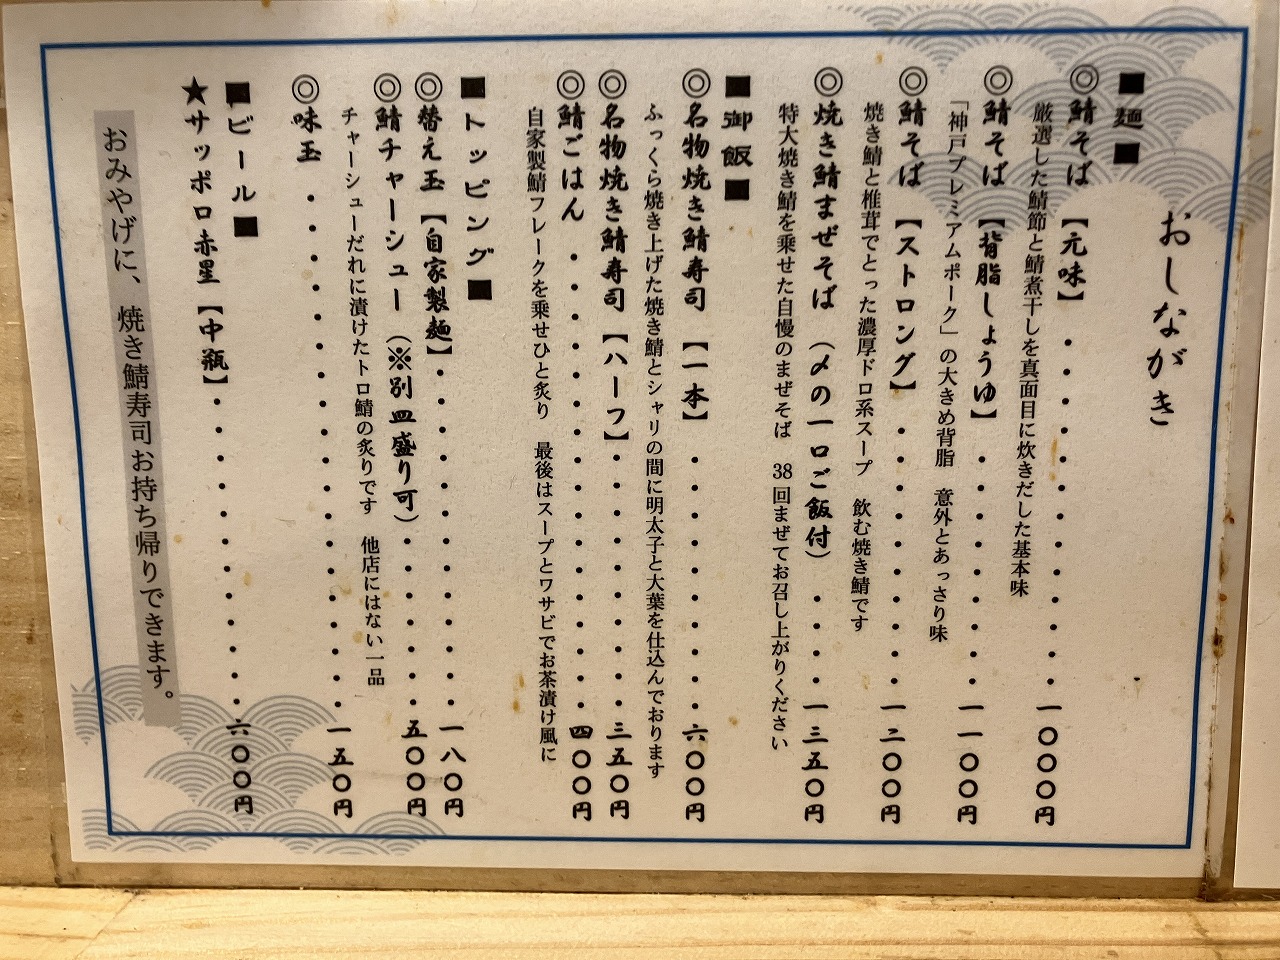 おしながき
■麺■
◎鯖そば【元味】・・・・・・・・・・・・・一〇〇〇円
厳選した鯖節と鯖煮干しを真面目に炊きだした基本味
◎鯖そば【背脂しょうゆ】・・・・・・・・・一一〇〇円
「神戸プレミアムポーク」の大きめ背脂　意外とあっさり味
◎鯖そば【ストロング】・・・・・・・・・・一二〇〇円
焼き鯖と椎茸でとった濃厚ドロ系スープ　飲む焼き鯖です
◎焼き鯖まぜそば（〆の一口ご飯付）・・・・一三五〇円
特大焼き鯖を乗せた自慢のまぜそば　38回まぜてお召し上がりください
■御飯■
◎名物焼き鯖寿司【一本】・・・・・・・・・・六〇〇円
ふっくら焼き上げた焼き鯖とシャリの間に明太子と大葉を仕込んでおります
◎名物焼き鯖寿司【ハーフ】・・・・・・・・・・三五〇円
◎鯖ごはん・・・・・・・・・・・・・・・・・四〇〇円
自家製鯖フレークを乗せひと炙り　最後はスープとワサビでお茶漬け風に
■トッピング■
◎替え玉【自家製麺】・・・・・・・・・・・・・一八〇円
◎鯖チャーシュー（※別皿盛り可）・・・・・・・五〇〇円
チャーシューだれに漬けたトロ鯖の炙りです　他店にはない一品
◎味玉・・・・・・・・・・・・・・・・・・・一五〇円
■ビール■
★サッポロ赤星【中瓶】・・・・・・・・・・・・六〇〇円
おみやげに、焼き鯖寿司お持ち帰りできます。